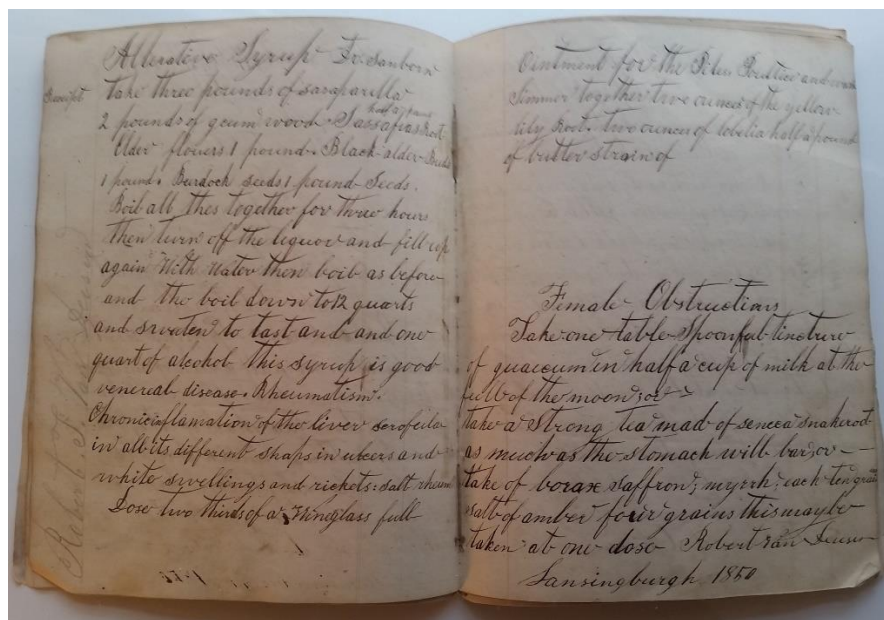 Alterative Syrup Dr. Sanborn
Receipt take three pounds of sasaparilla
2 pounds of gcum wood Sassafras Root half a pound
Elder flowers 1 pound. Black alder Buds
1 pound. Burdock seeds 1 pound Seeds.
Boil all thes together for three hours
then turn off the liquor and fill up
again With water then boil as before
and the boil down to 12 quarts
and sweten to tast and and one
quart of alcohol this syrup is good
venereal disease. Rheumatism.
Chronic iflamation of the liver scrofula
in all its different shaps in ulcers and
white swellings and rickets: salt rheum
Dose two thirds of a Wineglass full
Robert S. Van
Ointment for the Piles Poultice and
Simmer together two ounces of the yellow
lily Root. two ounces of lobelia half a pound
of butter strain of
Female Obstructions
Take one table Spoonful tincture
of guaiccum in half a cup of milk at the
full of the moon; or
take a Strong tea mad of seneca snakeroot
as much as the stomach will bar; or —
take of borax saffron; myrrh; each ten grains
salt of amber four grains this may be
taken at one dose Robert van
Lansingburgh 1850